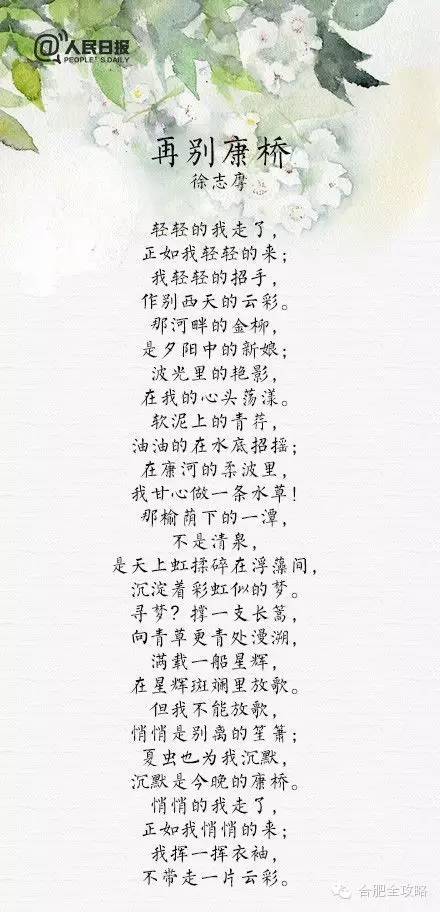 @人民日报
PEOPLE'S DAILY
再别康桥
徐志摩
轻轻的我走了，
正如我轻轻的来；
我轻轻的招手，
作别西天的云彩。
那河畔的金柳，
是夕阳中的新娘；
波光里的艳影，
在我的心头荡漾。
软泥上的青荇，
油油的在水底招摇；
在康河的柔波里，
我甘心做一条水草！
那榆荫下的一潭，
不是清泉，
是天上虹揉碎在浮藻间，
沉淀着彩虹似的梦。
寻梦？撑一支长篙，
向青草更青处漫溯，
满载一船星辉，
在星辉斑斓里放歌。
但我不能放歌，
悄悄是别离的笙箫；
夏虫也为我沉默，
沉默是今晚的康桥。
悄悄的我走了，
正如我悄悄的来；
我挥一挥衣袖，
不带走一片云彩。
合肥全攻略